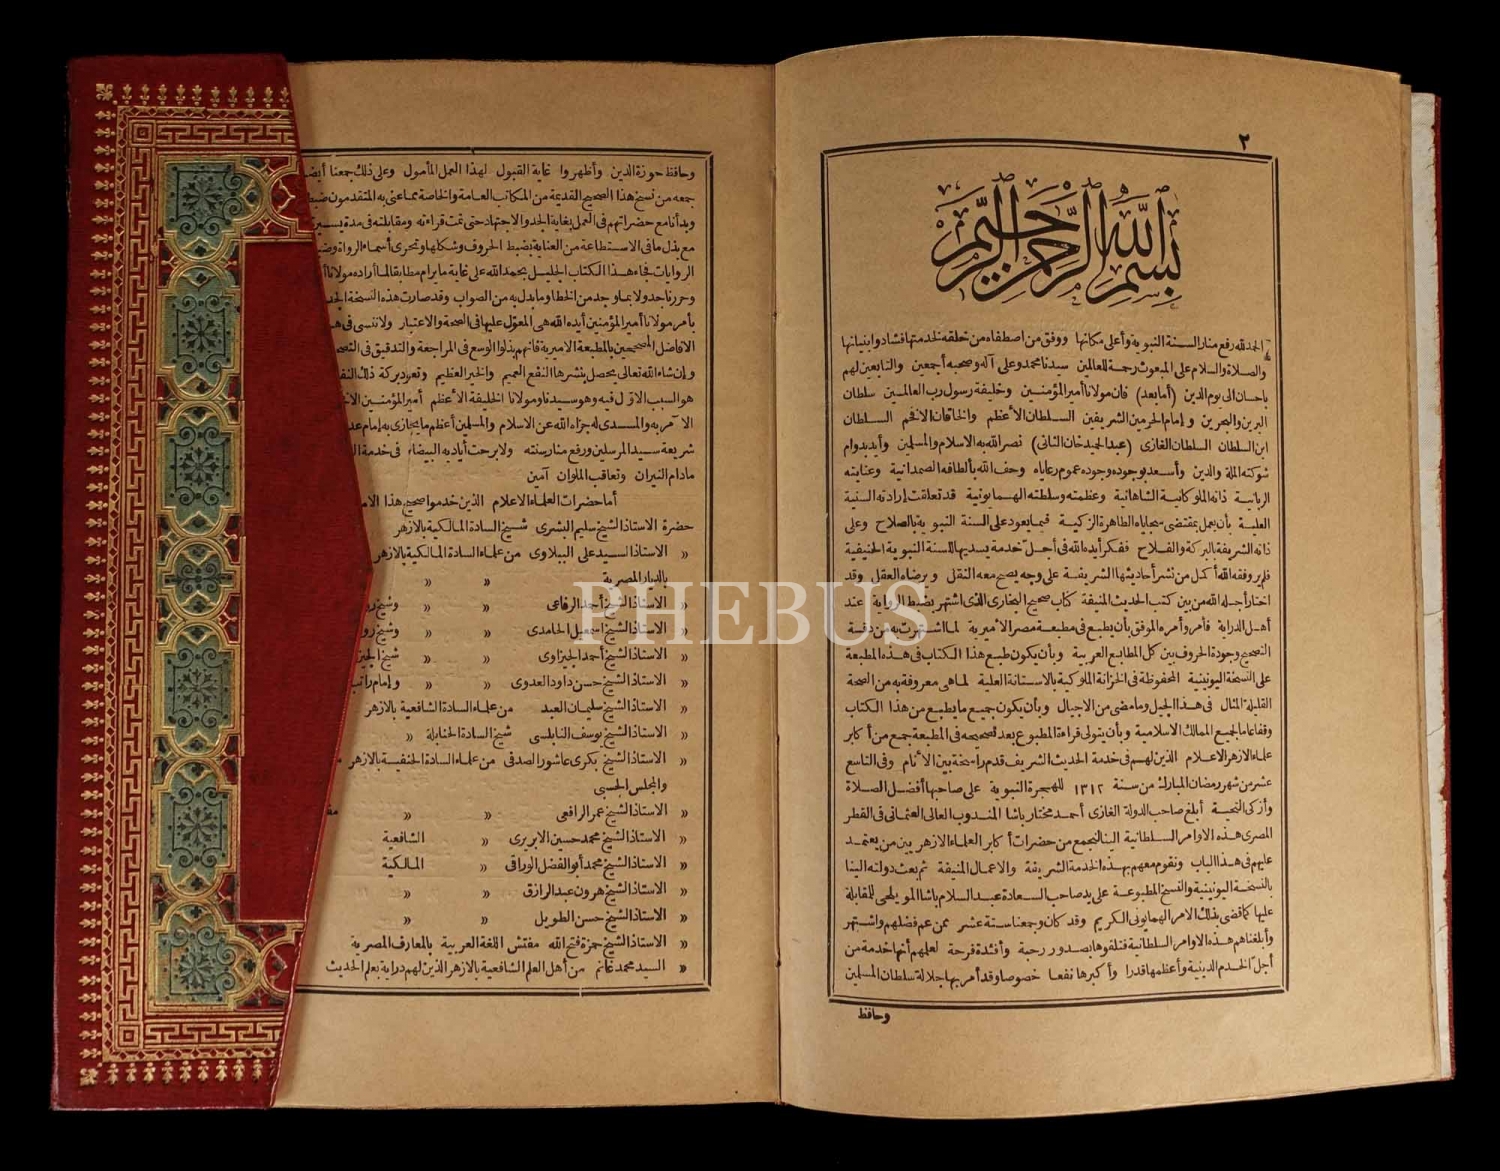 ٢
بسم الله الرحمن الرحيم
الحمد لله رفع منار السنة النبوية وأعلى مكانها ووفق من اصطفاه من خلقه لخدمتها فشادوا بنيانها
والصلاة والسلام على المبعوث رحمة للعالمين سيدنا محمد وعلى آله وصحبه أجمعين والتابعين لهم
باحسان الى يوم الدين (أما بعد) فان مولانا أمير المؤمنين وخليفة رسول رب العالمين سلطان
البرين والبحرين وإمام الحرمين الشريفين السلطان الأعظم والخاقان الأفخم السلطان
ابن السلطان السلطان الغازى (عبد الحميد خان الثانى) نصر الله به الاسلام والمسلمين وأيد بدوام
شوكته الملة والدين وأسعد بوجوده وجوده عموم رعاياه وحف الله بألطافه الصمدانية وعنايته
الربانية ذاته الملوكانية الشاهانية وعظمته وسلطنته الهمايونية قد تعلقت إرادته السنية
العلية بأن يعمل بمقتضى سجاياه الطاهرة الزكية فيما يعود على السنة النبوية بالصلاح وعلى
ذاته الشريفة بالبركة والفلاح ففكر أيده الله فى أجل خدمة يسديها للسنة النبوية الحنيفية
فلم ير وفقه الله أكمل من نشر أحاديثها الشريفة على وجه يصح معه النقل ويرضاه العقل وقد
اختار أجله الله من بين كتب الحديث المنيفة كتاب صحيح البخارى الذى اشتهر بضبط الرواية عند
أهل الدراية فأمر وأمره الموفق بأن يطبع فى مطبعة مصر الأميرية لما اشتهرت به من دقة
التصحيح وجودة الحروف بين كل المطابع العربية وبأن يكون طبع هذا الكتاب فى هذه المطبعة
على النسخة اليونينية المحفوظة فى الخزانة الملوكية بالاستانة العلية لما هى معروفة به من الصحة
القليلة المثال فى هذا الجيل وما مضى من الاجيال وبأن يكون جميع ما يطبع من هذا الكتاب
وقفا عاما لجميع الممالك الاسلامية وبأن يتولى قراءة المطبوع بعد تصحيحه فى المطبعة جمع من أكابر
علماء الازهر الاعلام الذين لهم فى خدمة الحديث الشريف قدم راسخة بين الأنام وفى التاسع
عشر من شهر رمضان المبارك من سنة ١٣١٢ للهجرة النبوية على صاحبها أفضل الصلاة
وأزكى التحية أبلغ صاحب الدولة الغازى أحمد مختار باشا المندوب العالى العثمانى فى القطر
المصرى هذه الاوامر السلطانية الينا لنجمع من حضرات أكابر العلماء الازهريين من يعتمد
عليهم فى هذا الباب ونقوم معهم بهذه الخدمة الشريفة والاعمال المنيفة ثم بعث دولته الينا
بالنسخة اليونينية والنسخ المطبوعة على يد صاحب السعادة عبد السلام باشا المويلحى للمقابلة
عليها كما قضى بذلك الامر الهمايونى الكريم وقد كان وجمعنا ستة عشر ممن عم فضلهم واشتهر
وأبلغناهم هذه الاوامر السلطانية فتلقوها بصدور رحبة وأفئدة فرحة لعلهم أنها خدمة من
أجل الخدم الدينية وأعظمها قدرا وأكبرها نفعا خصوصا وقد أمر بها جلالة سلطان المسلمين
وحافظ
وحافظ حوزة الدين وأظهروا غاية القبول لهذا العمل المأمول وعلى ذلك جمعنا أيضا
جمعه من نسخ هذا الصحيح القديمة من المكاتب العامة والخاصة مما عنى به المتقدمون ضبط
وبدأنا مع حضراتهم فى العمل بغاية الجد والاجتهاد حتى تمت قراءته ومقابلته فى مدة يسيرة
مع بذل ما فى الاستطاعة من العناية بضبط الحروف وشكلها وتحرى أسماء الرواة
الروايات فجاء هذا الكتاب الجليل بحمد الله على غاية ما يرام مطابقا لما أراده مولانا
وحررنا جدولا بما وجد من الخطا وما بدل به من الصواب وقد صارت هذه النسخة
بأمر مولانا أمير المؤمنين أيده الله هى المعول عليها فى الصحة والاعتبار ولا ننسى
الافاضل المصححين بالمطبعة الاميرية فانهم بذلوا الوسع فى المراجعة والتدقيق فى
وإن شاء الله تعالى يحصل بنشرها النفع العميم والخير العظيم وتعود بركة ذلك
هو السبب الاول فيه وهو سيدنا ومولانا الخليفة الأعظم أمير المؤمنين
الآمر به والمسدى له جزاه الله عن الاسلام والمسلمين أعظم ما يجازى به إمام
شريعة سيد المرسلين ورفع منار سنته ولا برحت أياديه البيضاء فى خدمة
مادام النيران وتعاقب الملوان آمين
أما حضرات العلماء الاعلام الذين خدموا صحيح هذا
حضرة الاستاذ الشيخ سليم البشرى شيخ السادة المالكية بالازهر
« الاستاذ السيد على الببلاوى من علماء السادة المالكية بالازهر
بالديار المصرية
« الاستاذ الشيخ أحمد الرفاعى « « وشيخ
« الاستاذ الشيخ اسمعيل الحامدى « « وشيخ
« الاستاذ الشيخ أحمد الجيزاوى « « شيخ
« الاستاذ الشيخ حسن داود العدوى « « وإمام راتب
« الاستاذ الشيخ سليمان العبد من علماء السادة الشافعية بالازهر
« الاستاذ الشيخ يوسف النابلسى شيخ السادة الحنابلة «
« الاستاذ الشيخ بكرى عاشور الصدفى من علماء السادة الحنفية بالازهر
والمجلس الحسبى
« الاستاذ الشيخ عمر الرافعى « «
« الاستاذ الشيخ محمد حسين الابريرى « الشافعية
« الاستاذ الشيخ محمد أبو الفضل الوراقى « المالكية
« الاستاذ الشيخ هرون عبد الرازق « «
« الاستاذ الشيخ حسن الطويل « «
« الاستاذ الشيخ حمزة فتح الله مفتش اللغة العربية بالمعارف المصرية
« السيد محمد غانم من أهل العلم الشافعية بالازهر الذين لهم دراية بعلم الحديث
PHEBUS